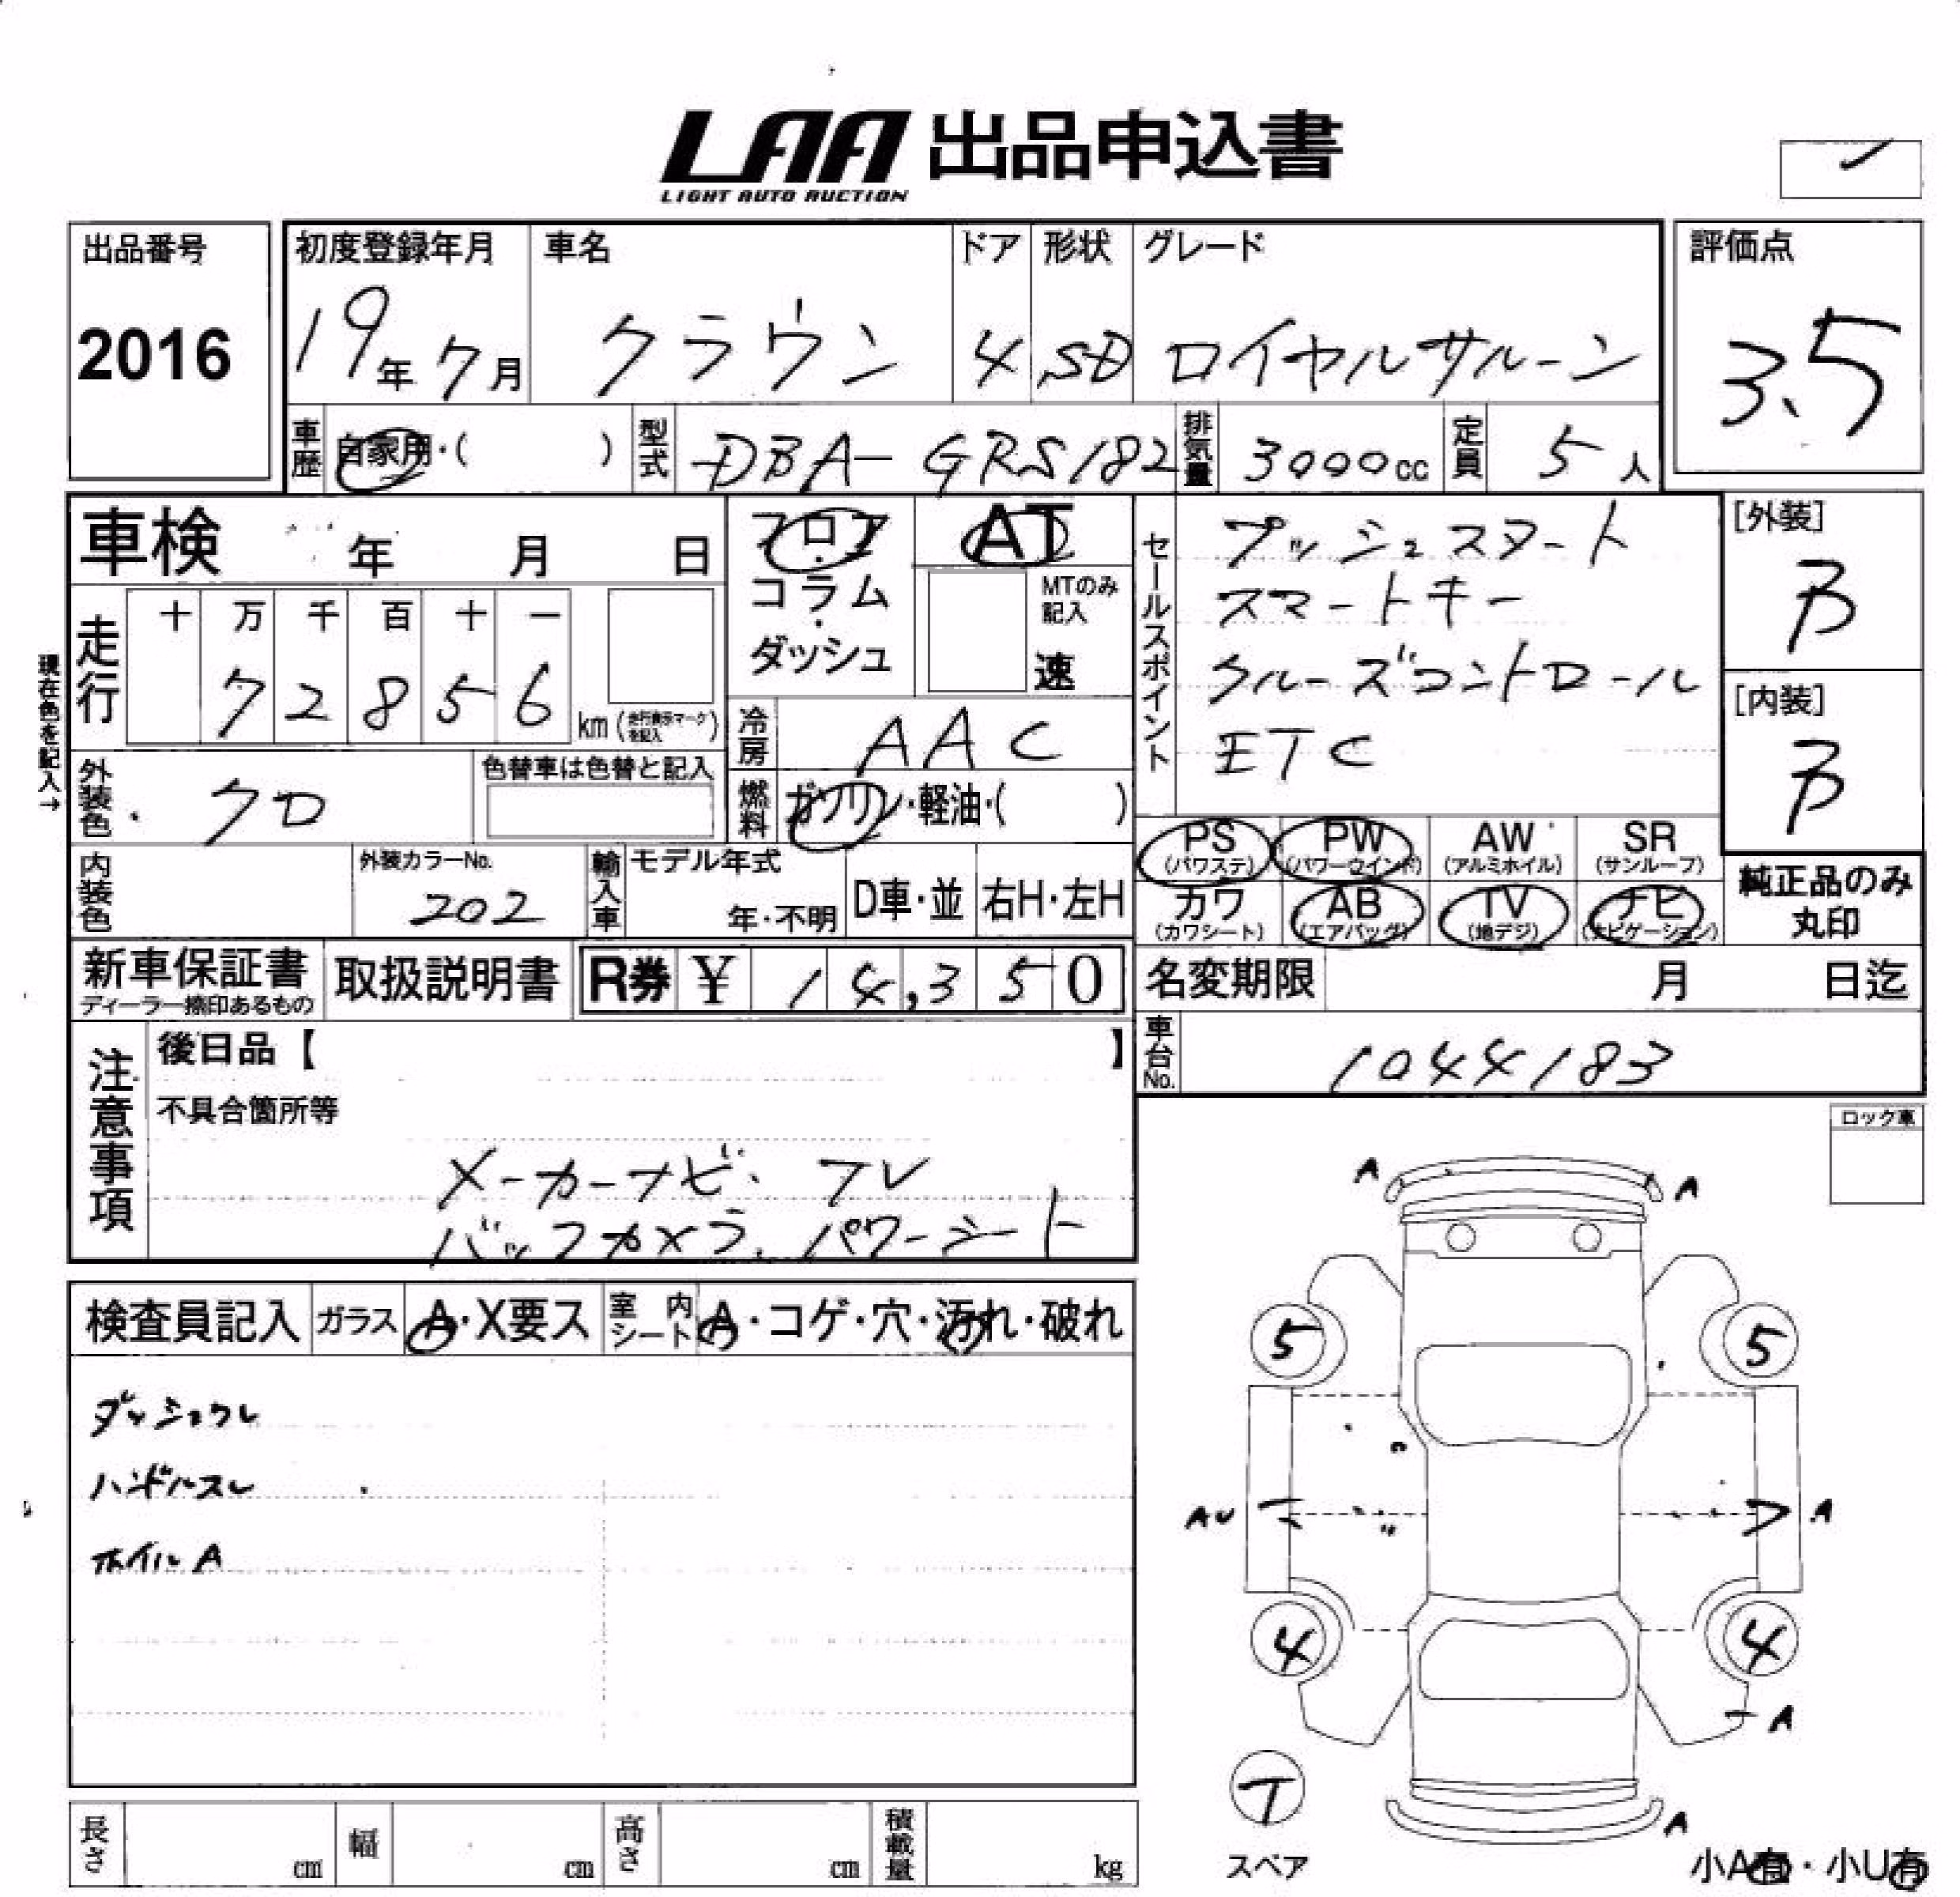 LAA 出品申込書
LIGHT AUTO AUCTION
出品番号
2016
初度登録年月 車名 ドア 形状 グレード
19年7月 クラウン 4 SD ロイヤルサルーン
評価点
3.5
車歴 自家用・( ) 型式 DBA-GRS182 排気量 3000cc 定員 5人
車検 年 月 日
フロア・コラム・ダッシュ
AT
MTのみ記入
速
セールスポイント
プッシュスタート
スマートキー
クルーズコントロール
ETC
[外装]
B
[内装]
B
現在色を記入→
走行
十 万 千 百 十 一
7 2 8 5 6
km (走行表示マークを記入)
冷房 AAC
外装色 クロ
色替車は色替と記入
燃料 ガソリン・軽油・( )
PS (パワステ) PW (パワーウインド) AW (アルミホイル) SR (サンルーフ)
カワ (カワシート) AB (エアバッグ) TV (地デジ) ナビ (ナビゲーション)
純正品のみ
丸印
内装色
外装カラーNo.
202
輸入車
モデル年式
年・不明
D車・並 右H・左H
新車保証書
ディーラー捺印あるもの
取扱説明書
R券 ¥ 14,350
名変期限 月 日迄
車台No. 1044183
注意事項
後日品【 】
不具合箇所等
メーカーナビ. TV
バックカメラ. パワーシート
ロック車
検査員記入 ガラス A・X要ス 室内シート A・コゲ・穴・汚れ・破れ
ダッシュウレ
ハンドルスレ
ホイルA
A A
5 5
AU A
4 4
A
T
スペア
A
小A有・小U有
長さ cm 幅 cm 高さ cm 積載量 kg